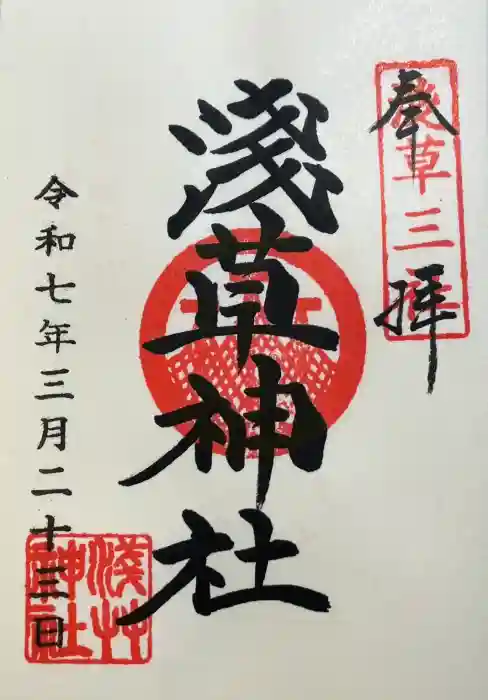 奉拝
浅草三社
淺草神社
令和七年三月二十三日